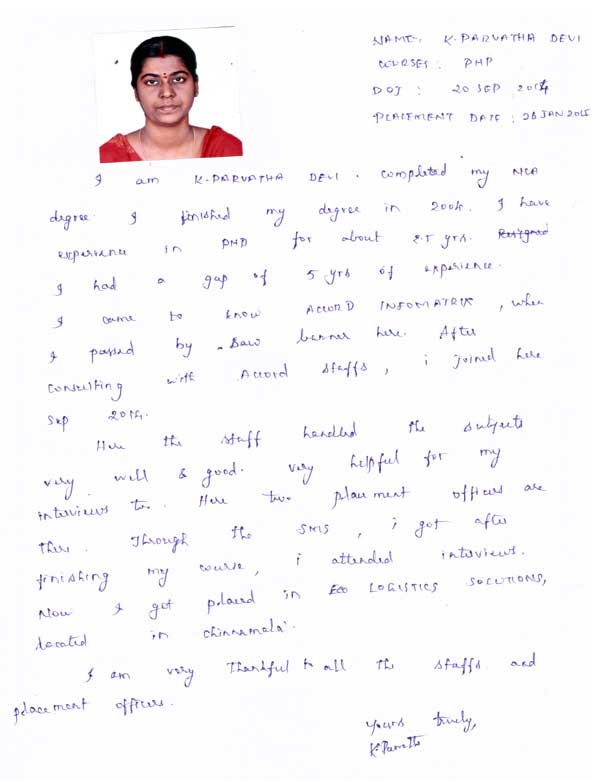 NAME: K.PARVATHA DEVI
COURSES: PHP
DOJ: 20 SEP 2014
PLACEMENT DATE: 28 JAN 2015
I am K.PARVATHA DEVI. Completed my MCA
degree. I finished my degree in 2004. I have
experience in PHP for about 2.5 yrs. Resigned
I had a gap of 5 yrs of experience.
I came to know ACCORD INFOMATRIX, when
I passed by. Saw banner here. After
consulting with Accord staffs, i joined here
Sep 2014.
Here the staff handled the subjects
very well & good. Very helpful for my
interviews too. Here two placement officers are
there. Through the SMS, i got after
finishing my course, i attended interviews.
Now I got placed in ECO LOGISTICS SOLUTIONS,
located in chinnamalai.
I am very Thankful to all the staffs and
placement officers.
Yours truly,